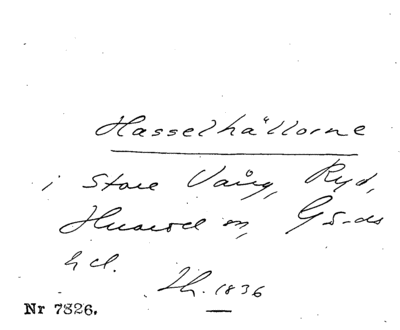 Hasselhällorne
i Store Vång, Ryd,
Huarød sn, Gä-ds
hd.
Lh. 1836
Nr 7826.